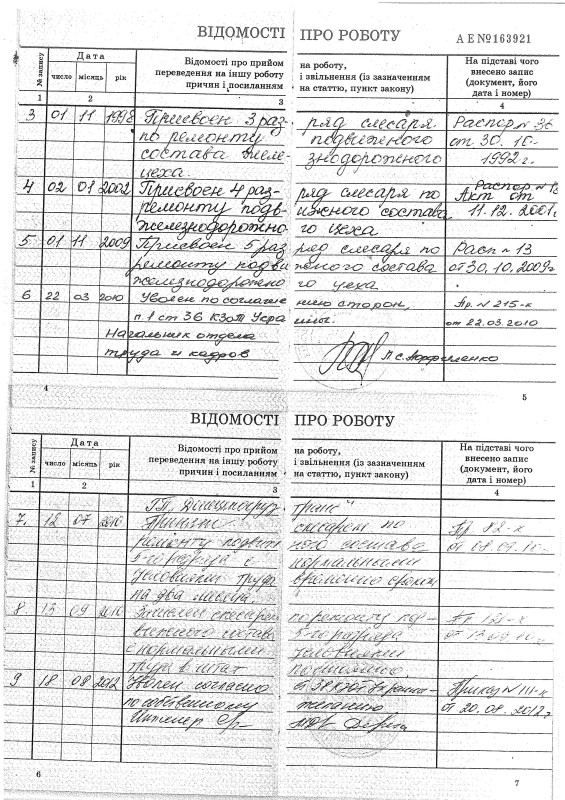 ВІДОМОСТІ ПРО РОБОТУ АЕ№163921
№ запису Дата Відомості про прийом переведення на іншу роботу причин і посиланням на роботу, і звільнення (із зазначенням на статтю, пункт закону) На підставі чого внесено запис (документ, його дата і номер)
число місяць рік
1 2 3 4
3 01 11 1998 Присвоен 3 разряд слесаря Распор № 36
по ремонту подвижного от 30.10.
состава желе знодорожного 1992 г.
цеха.
4 02 01 2002 Присвоен 4 разряд слесаря по Распор №
ремонту подвижного состава Акт от
железнодорожного цеха 11.12.2001г.
5 01 11 2009 Присвоен 5 разряд слесаря по Расп № 13
ремонту подвижного состава от 30.10.2009г
железнодорожного цеха
6 22 03 2010 Уволен по соглашению сторон, Пр. № 215-к
п. 1 ст 36 КЗоТ Украины. от 22.03.2010
Начальник отдела
труда и кадров
4 5
ВІДОМОСТІ ПРО РОБОТУ
№ запису Дата Відомості про прийом переведення на іншу роботу причин і посиланням на роботу, і звільнення (із зазначенням на статтю, пункт закону) На підставі чого внесено запис (документ, його дата і номер)
число місяць рік
1 2 3 4
ГП
7. 12 07 2010 Принят слесарем по Пр 82-к
ремонту подвижного состава
5-го разряда с нормальными
условиями труда
на два месяца
8. 13 09 2010 слесарем по ремонту под- Пр 121-к
вижного состава 5-го разряда от 13.09.10г.
с нормальными условиями
труда в штат постоянно.
9 18 08 2012 Уволен согласно Приказ № 111-к
по собственному желанию от 20.08.2012г
Инженер
6 7